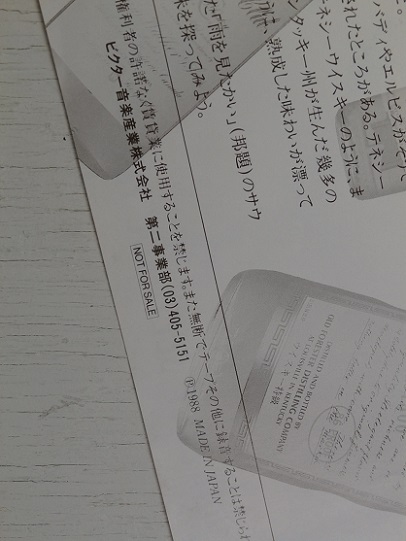 バディやエルビスがそう
されたところがある。テネシー
テネシーウイスキーのように、ま
ンタッキー州が生んだ幾多の
うに、熟成した味わいが漂って
た「雨を見たかい」(邦題)のサウ
を探ってみよう。
権利者の許諾なく賃貸業に使用することを禁じます。また無断でテープその他に録音することは禁じられ
ビクター音楽産業株式会社 第二事業部(03)405-5151
NOT FOR SALE
Ⓟ1988 MADE IN JAPAN
AND BOTTLED BY
OLD FORESTER DISTILLING COMPANY
AT LOUISVILLE IN KENTUCKY
特級